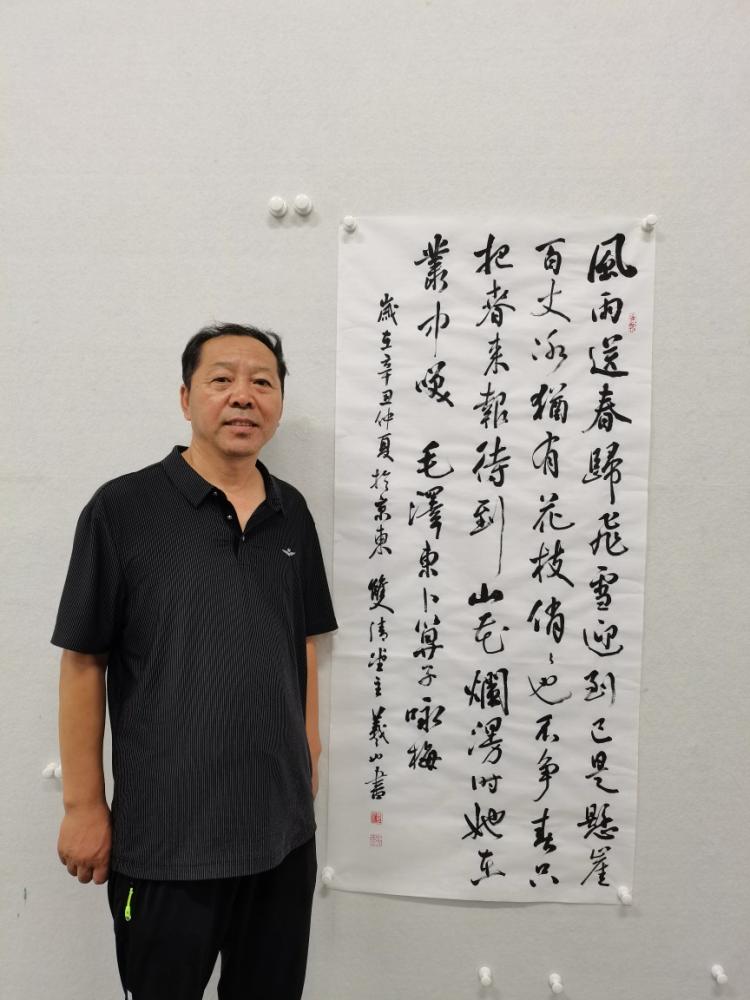 風雨送春歸飛雪迎到已是懸崖
百丈冰猶有花枝俏俏也不争春只
把春来報待到山花爛漫時她在
叢中笑 毛澤東卜算子咏梅
歲在辛丑仲夏於京東 雙清堂主羲山書